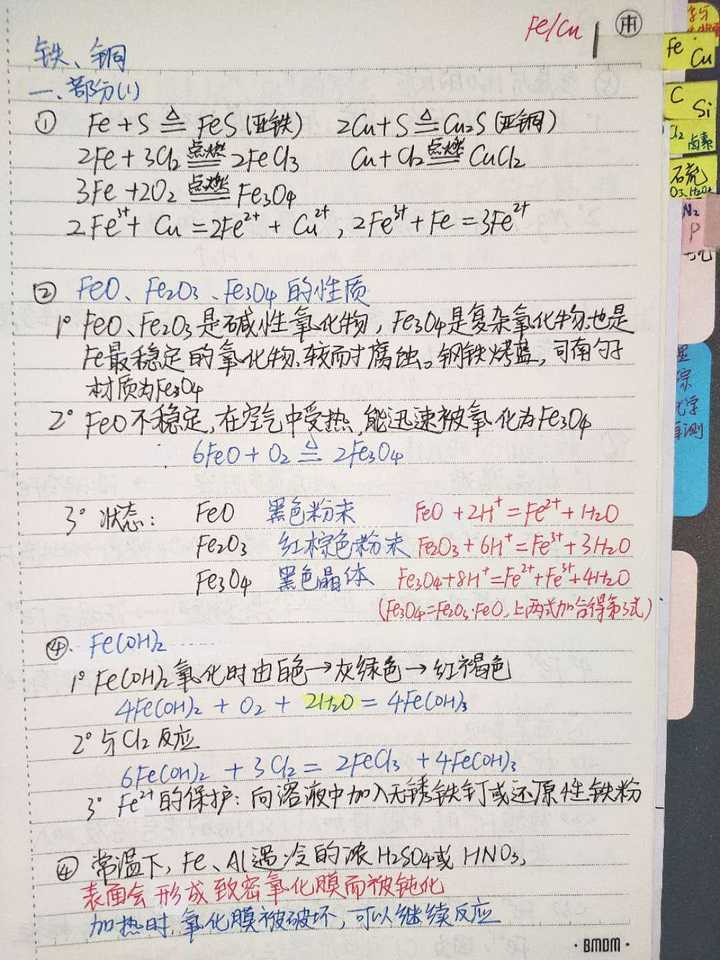 Fe/Cu
铁、铜
一、部分(1)
① Fe+S ≜ FeS (亚铁) 2Cu+S ≜ Cu2S (亚铜)
2Fe+3Cl2 点燃 2FeCl3 Cu+Cl2 点燃 CuCl2
3Fe+2O2 点燃 Fe3O4
2Fe3+ + Cu = 2Fe2+ + Cu2+, 2Fe3+ + Fe = 3Fe2+
② FeO、Fe2O3、Fe3O4的性质
1° FeO、Fe2O3是碱性氧化物, Fe3O4是复杂氧化物.也是
Fe最稳定的氧化物.较耐腐蚀。钢铁烤蓝,司南勺子
材质为Fe3O4
2° FeO不稳定,在空气中受热,能迅速被氧化为Fe3O4
6FeO + O2 ≜ 2Fe3O4
3° 状态: FeO 黑色粉末 FeO + 2H+ = Fe2+ + H2O
Fe2O3 红棕色粉末 Fe2O3 + 6H+ = Fe3+ + 3H2O
Fe3O4 黑色晶体 Fe3O4+8H+=Fe2++Fe3++4H2O
(Fe3O4=Fe2O3·FeO,上两式加合得第3式)
④. Fe(OH)2
1° Fe(OH)2氧化时由白色→灰绿色→红褐色
4Fe(OH)2 + O2 + 2H2O = 4Fe(OH)3
2° 与Cl2反应
6Fe(OH)2 + 3Cl2 = 2FeCl3 + 4Fe(OH)3
3° Fe2+的保护:向溶液中加入无锈铁钉或还原性铁粉
④ 常温下, Fe、Al遇冷的浓H2SO4或HNO3,
表面会形成致密氧化膜而被钝化
加热时,氧化膜被破坏,可以继续反应
·BMDM·
Fe Cu
C Si
Cl2 卤素
硫
O3、H2O2
N2
P